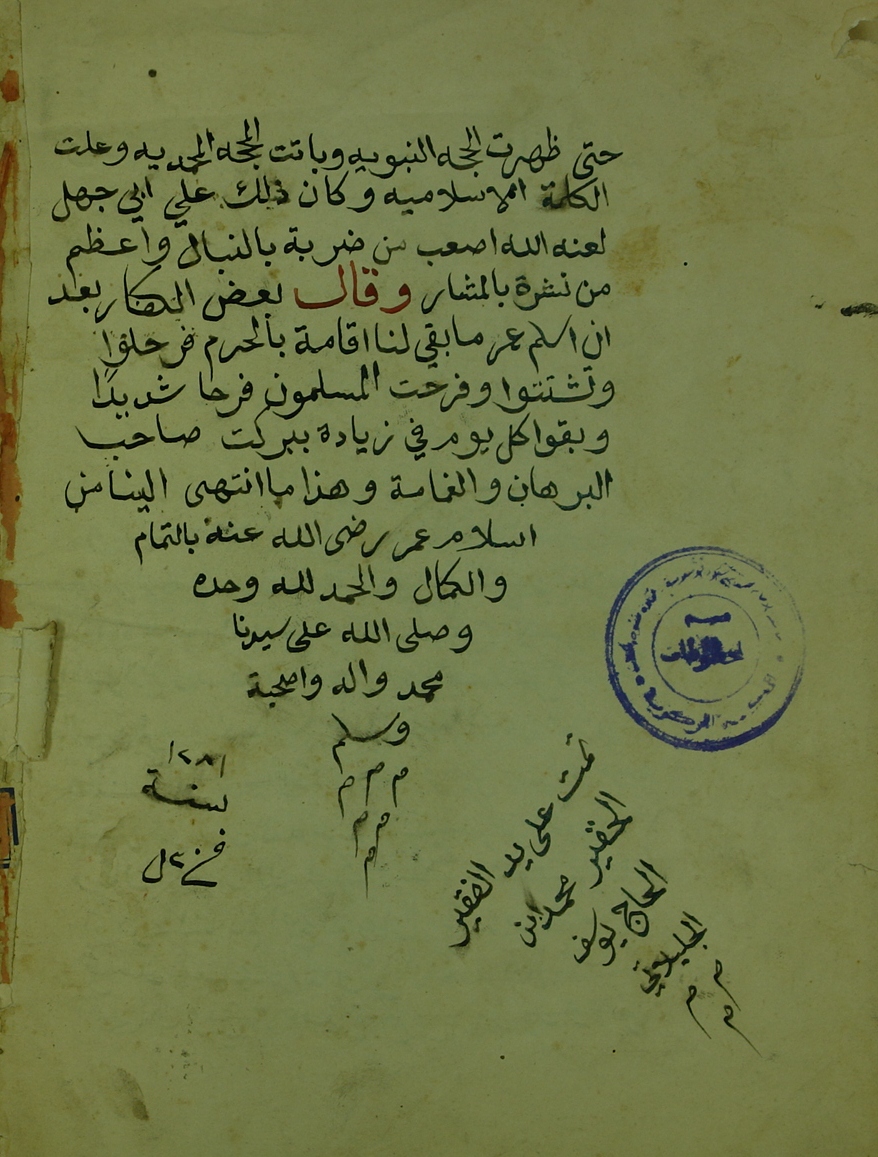 حتى ظهرت الحجه النبويه وبانت المحجه المحمديه وعلت
الكلمة الاسلاميه وكان ذلك علي ابي جهل
لعنه الله اصعب من ضربة بالنبال واعظم
من نشرة بالمشار وقال بعض الكفار بعد
ان اسلم عمر ما بقي لنا اقامة بالحرم فرحلوا
وتشتتوا وفرحت المسلمون فرحا شديدا
وبقوا كل يوم في زيادة ببركت صاحب
البرهان والغمامة وهذا ما انتهى الينا من
اسلام عمر رضى الله عنه بالتمام
والكمال والحمد لله وحده
وصلى الله على سيدنا
محمد واله واصحبة
وسلم
م م م
م م
م
١٢٨١
سنة
تمت على يد الفقير
الحقير محمد ابن
الحاج يوسف
الجيلاتي
م م م